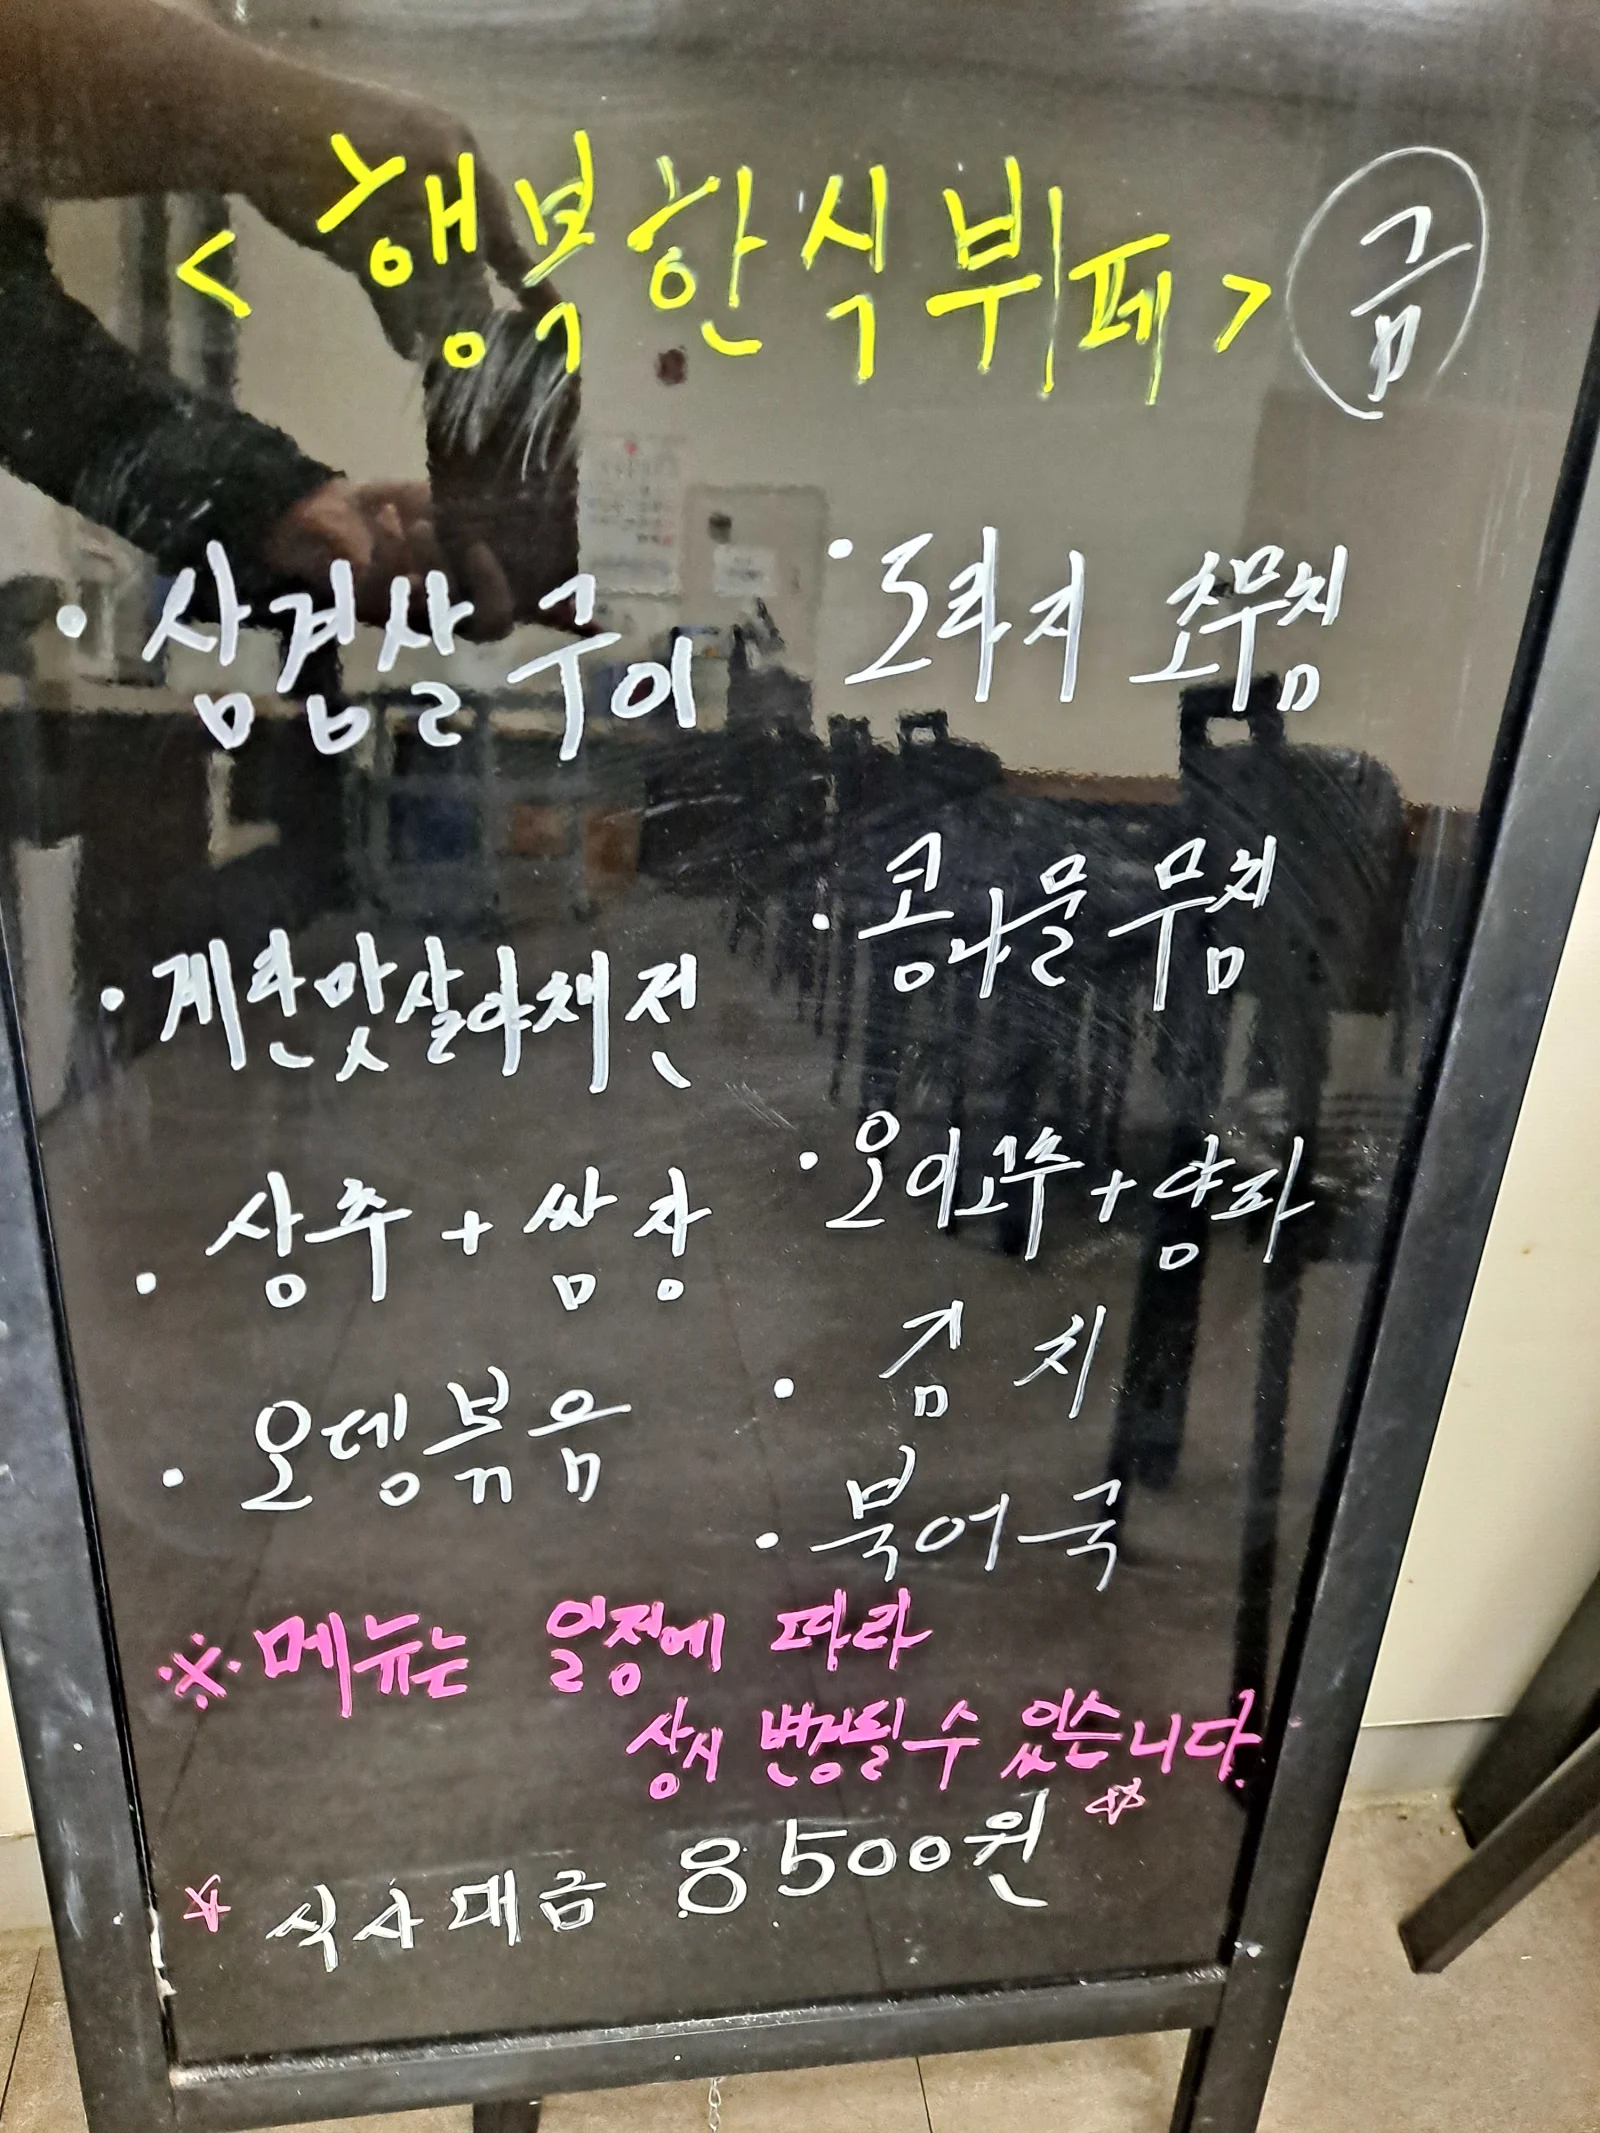 <행복한식뷔페> 금
• 삼겹살 구이
• 계란맛살야채전
• 상추 + 쌈장
• 오뎅볶음
• 도라지 초무침
• 콩나물 무침
• 오이고추 + 양파
• 김치
• 북어국
※메뉴는 일정에 따라
상시 변경될 수 있습니다.
☆ 식사대금 8500원 ☆